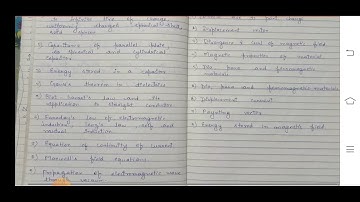 to infinite line of charge,
uniformly charged spherical shell,
and sphere
Capacitance of parallel plate,
spherical and cylindrical
capacitors
Energy stored in a capacitor
Gauss's theorem in dielectrics
Biot Savart's law and its
application to straight conductor
Faraday's law of electromagnetic
induction, Lenz's law, self and
mutual induction
Equation of continuity of current
Maxwell's field equations
Propagation of electromagnetic wave
through vacuum
due to point charge
Displacement vector
Divergence & curl of magnetic field
Magnetic properties of material
Dia, para and ferromagnetic
materials
Dia, para and ferromagnetic materials
Displacement current
Poynting vector
Energy stored in magnetic field